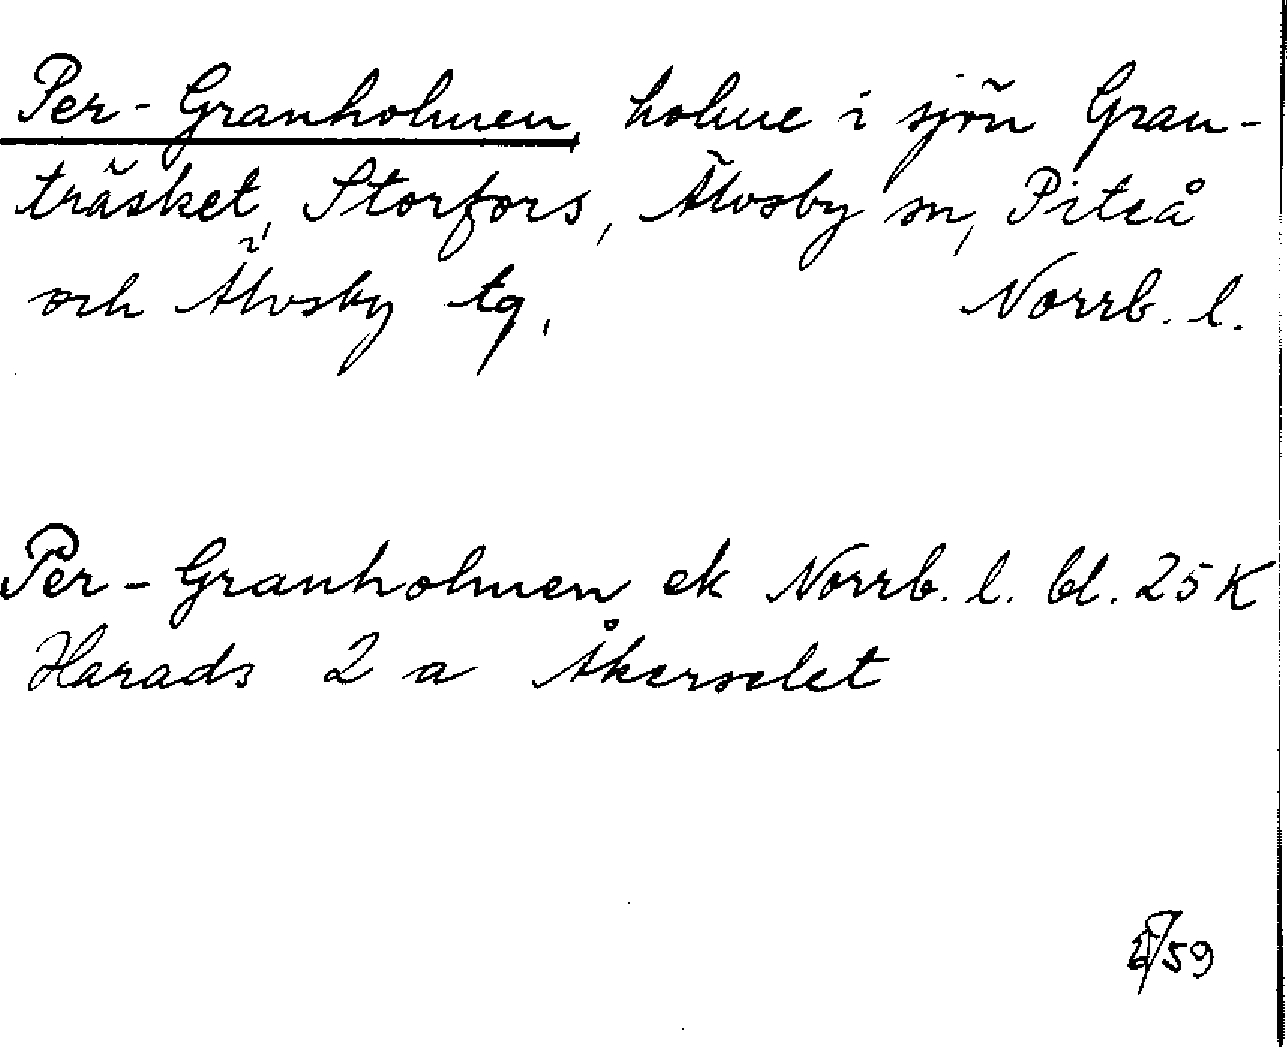 Per-Granholmen, holme i sjön Gran-
träsket, Storfors, Älvsby sn, Piteå
och Älvsby tg, Norrb. l.
Per-Granholmen ek Norrb. l. bl. 25K
Harads 2 a Åkerselet
/59